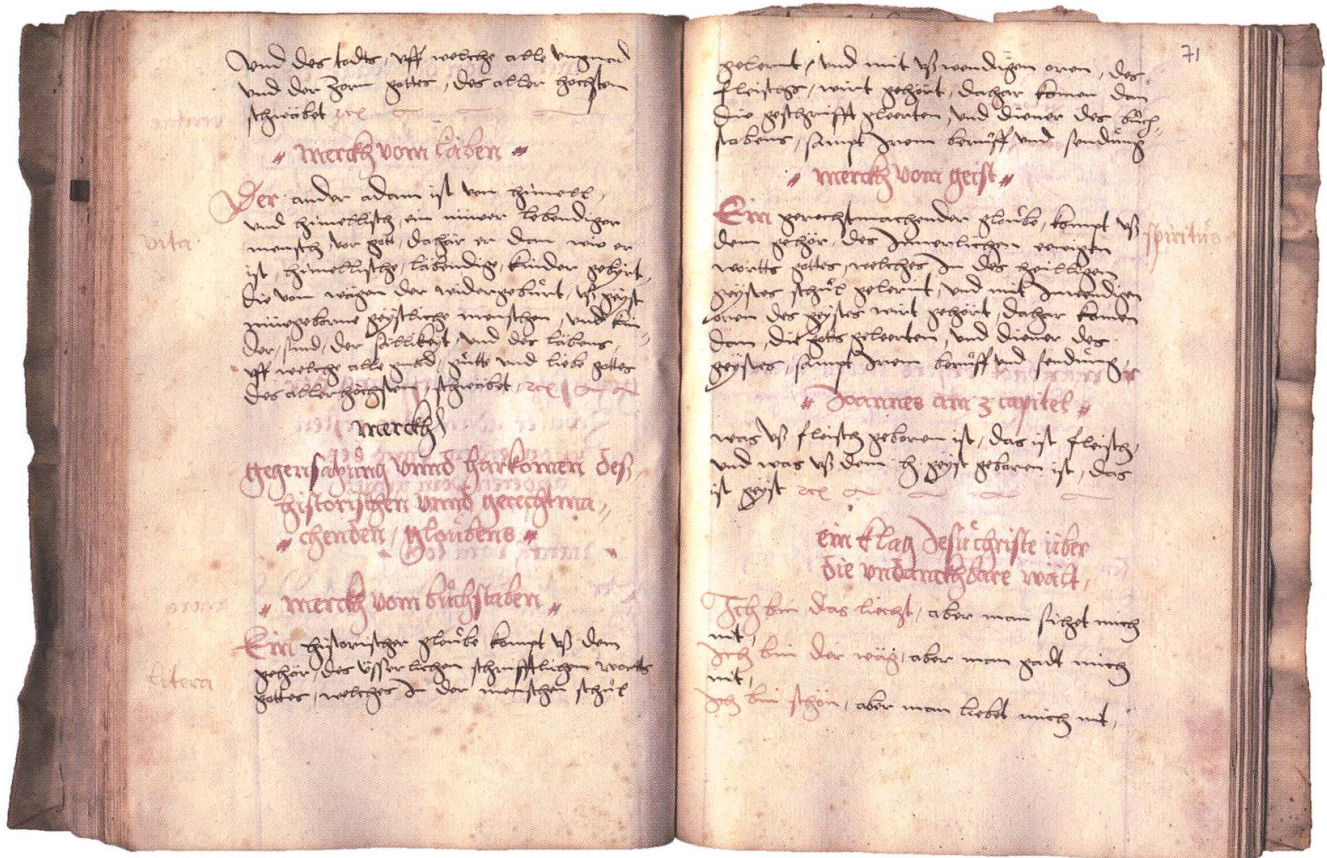 vnd des todts, vff welche alle vngnad
vnd der zorn gottes, des aller höchsten
schwäbet
merckh vom läben
vita
Der ander adam ist von himell,
vnd himellisch ein nüwer lebendiger
mensch vor gott, dahär er dan, wie er
ist, himellische, läbendig, kinder gebyrt,
die von wägen der widergebůrt, vß geyst
nüwgeborne geystliche menschen, vnd kin-
der, sind, der sälikeyt, vnd des läbens,
vff welche alle gnad, gütte vnd liebe gottes
des aller höchsten, schwäbet,
merckh
gegensatzung vnnd harkomen deß
historischen vnnd gerechtma,,
chenden, gloubens
merckh vom bůchstaben
litera
Ein historischer gloube kompt vß dem
gehör, des üsserlichen schrifftlichen worts
gottes, welches in der menschen schůl
71
gelernt, vnd mit vßwendigen oren, des
fleischs, wirt gehört, dahar komen dan
die geschrifft gleerten, vnd diener des bůch-
stabens, sampt irem berůff vnd sendung
merckh vom geist
spiritus
Ein gerechtmachender gloube, kompt vß
dem gehör, des innerlichen ewigen
wortts gottes, welches in des heilligen
geystes schůl gelernt, vnd mit inwendigen
oren des geystes wirt gehört, dahar komen
dan, die gotts geleerten, vnd diener des
geystes, sampt irem berůff vnd sendung,
Joannes am 3 capitel
was vß fleisch geboren ist, das ist fleisch,
vnd was vß dem h geyst geboren ist, das
ist geyst
ein klag Jesu christe über
die vndanckhbare wält,
Ich bin das liecht, aber man sihet mich
nit,
Ich bin der wäg, aber man gadt mich
nit,
Ich bin schön, aber man liebt mich nit,